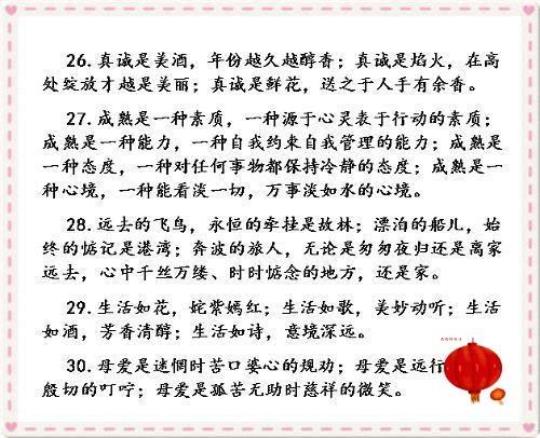 26.真诚是美酒，年份越久越醇香；真诚是焰火，在高
处绽放才越是美丽；真诚是鲜花，送之于人手有余香。
27.成熟是一种素质，一种源于心灵表于行动的素质；
成熟是一种能力，一种自我约束自我管理的能力；成熟是
一种态度，一种对任何事物都保持冷静的态度；成熟是一
种心境，一种能看淡一切，万事淡如水的心境。
28.远去的飞鸟，永恒的牵挂是故林；漂泊的船儿，始
终的惦记是港湾；奔波的旅人，无论是匆匆夜归还是离家
远去，心中千丝万缕、时时惦念的地方，还是家。
29.生活如花，姹紫嫣红；生活如歌，美妙动听；生活
如酒，芳香清醇；生活如诗，意境深远。
30.母爱是迷惘时苦口婆心的规劝；母爱是远行
殷切的叮咛；母爱是孤苦无助时慈祥的微笑。